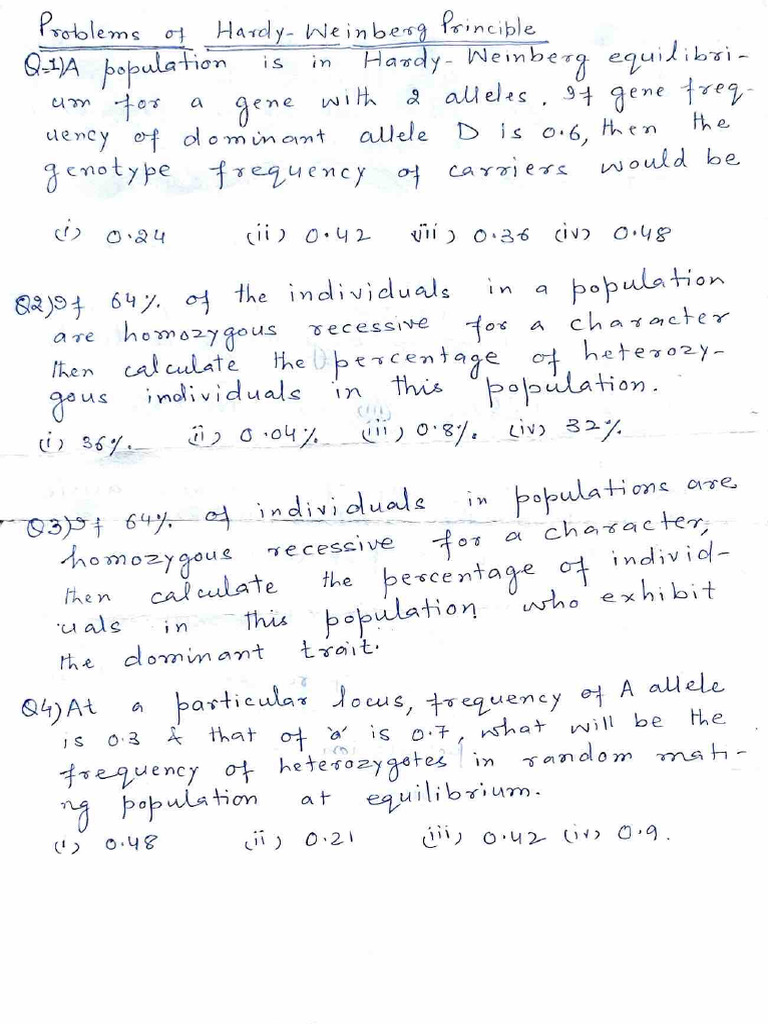 Problems of Hardy-Weinberg Principle
Q-1)A population is in Hardy-Weinberg equilibri-
um for a gene with 2 alleles. If gene freq-
uency of dominant allele D is 0.6, then the
genotype frequency of carriers would be
(i) 0.24 (ii) 0.42 (iii) 0.36 (iv) 0.48
Q2)If 64%. of the individuals in a population
are homozygous recessive for a character
then calculate the percentage of heterozy-
gous individuals in this population.
(i) 36%. (ii) 0.04%. (iii) 0.8%. (iv) 32%.
Q3)If 64%. of individuals in populations are
homozygous recessive for a character,
then calculate the percentage of individ-
uals in this population who exhibit
the dominant trait.
Q4)At a particular locus, frequency of A allele
is 0.3 & that of 'a' is 0.7, what will be the
frequency of heterozygotes in random mati-
ng population at equilibrium.
(i) 0.48 (ii) 0.21 (iii) 0.42 (iv) 0.9.